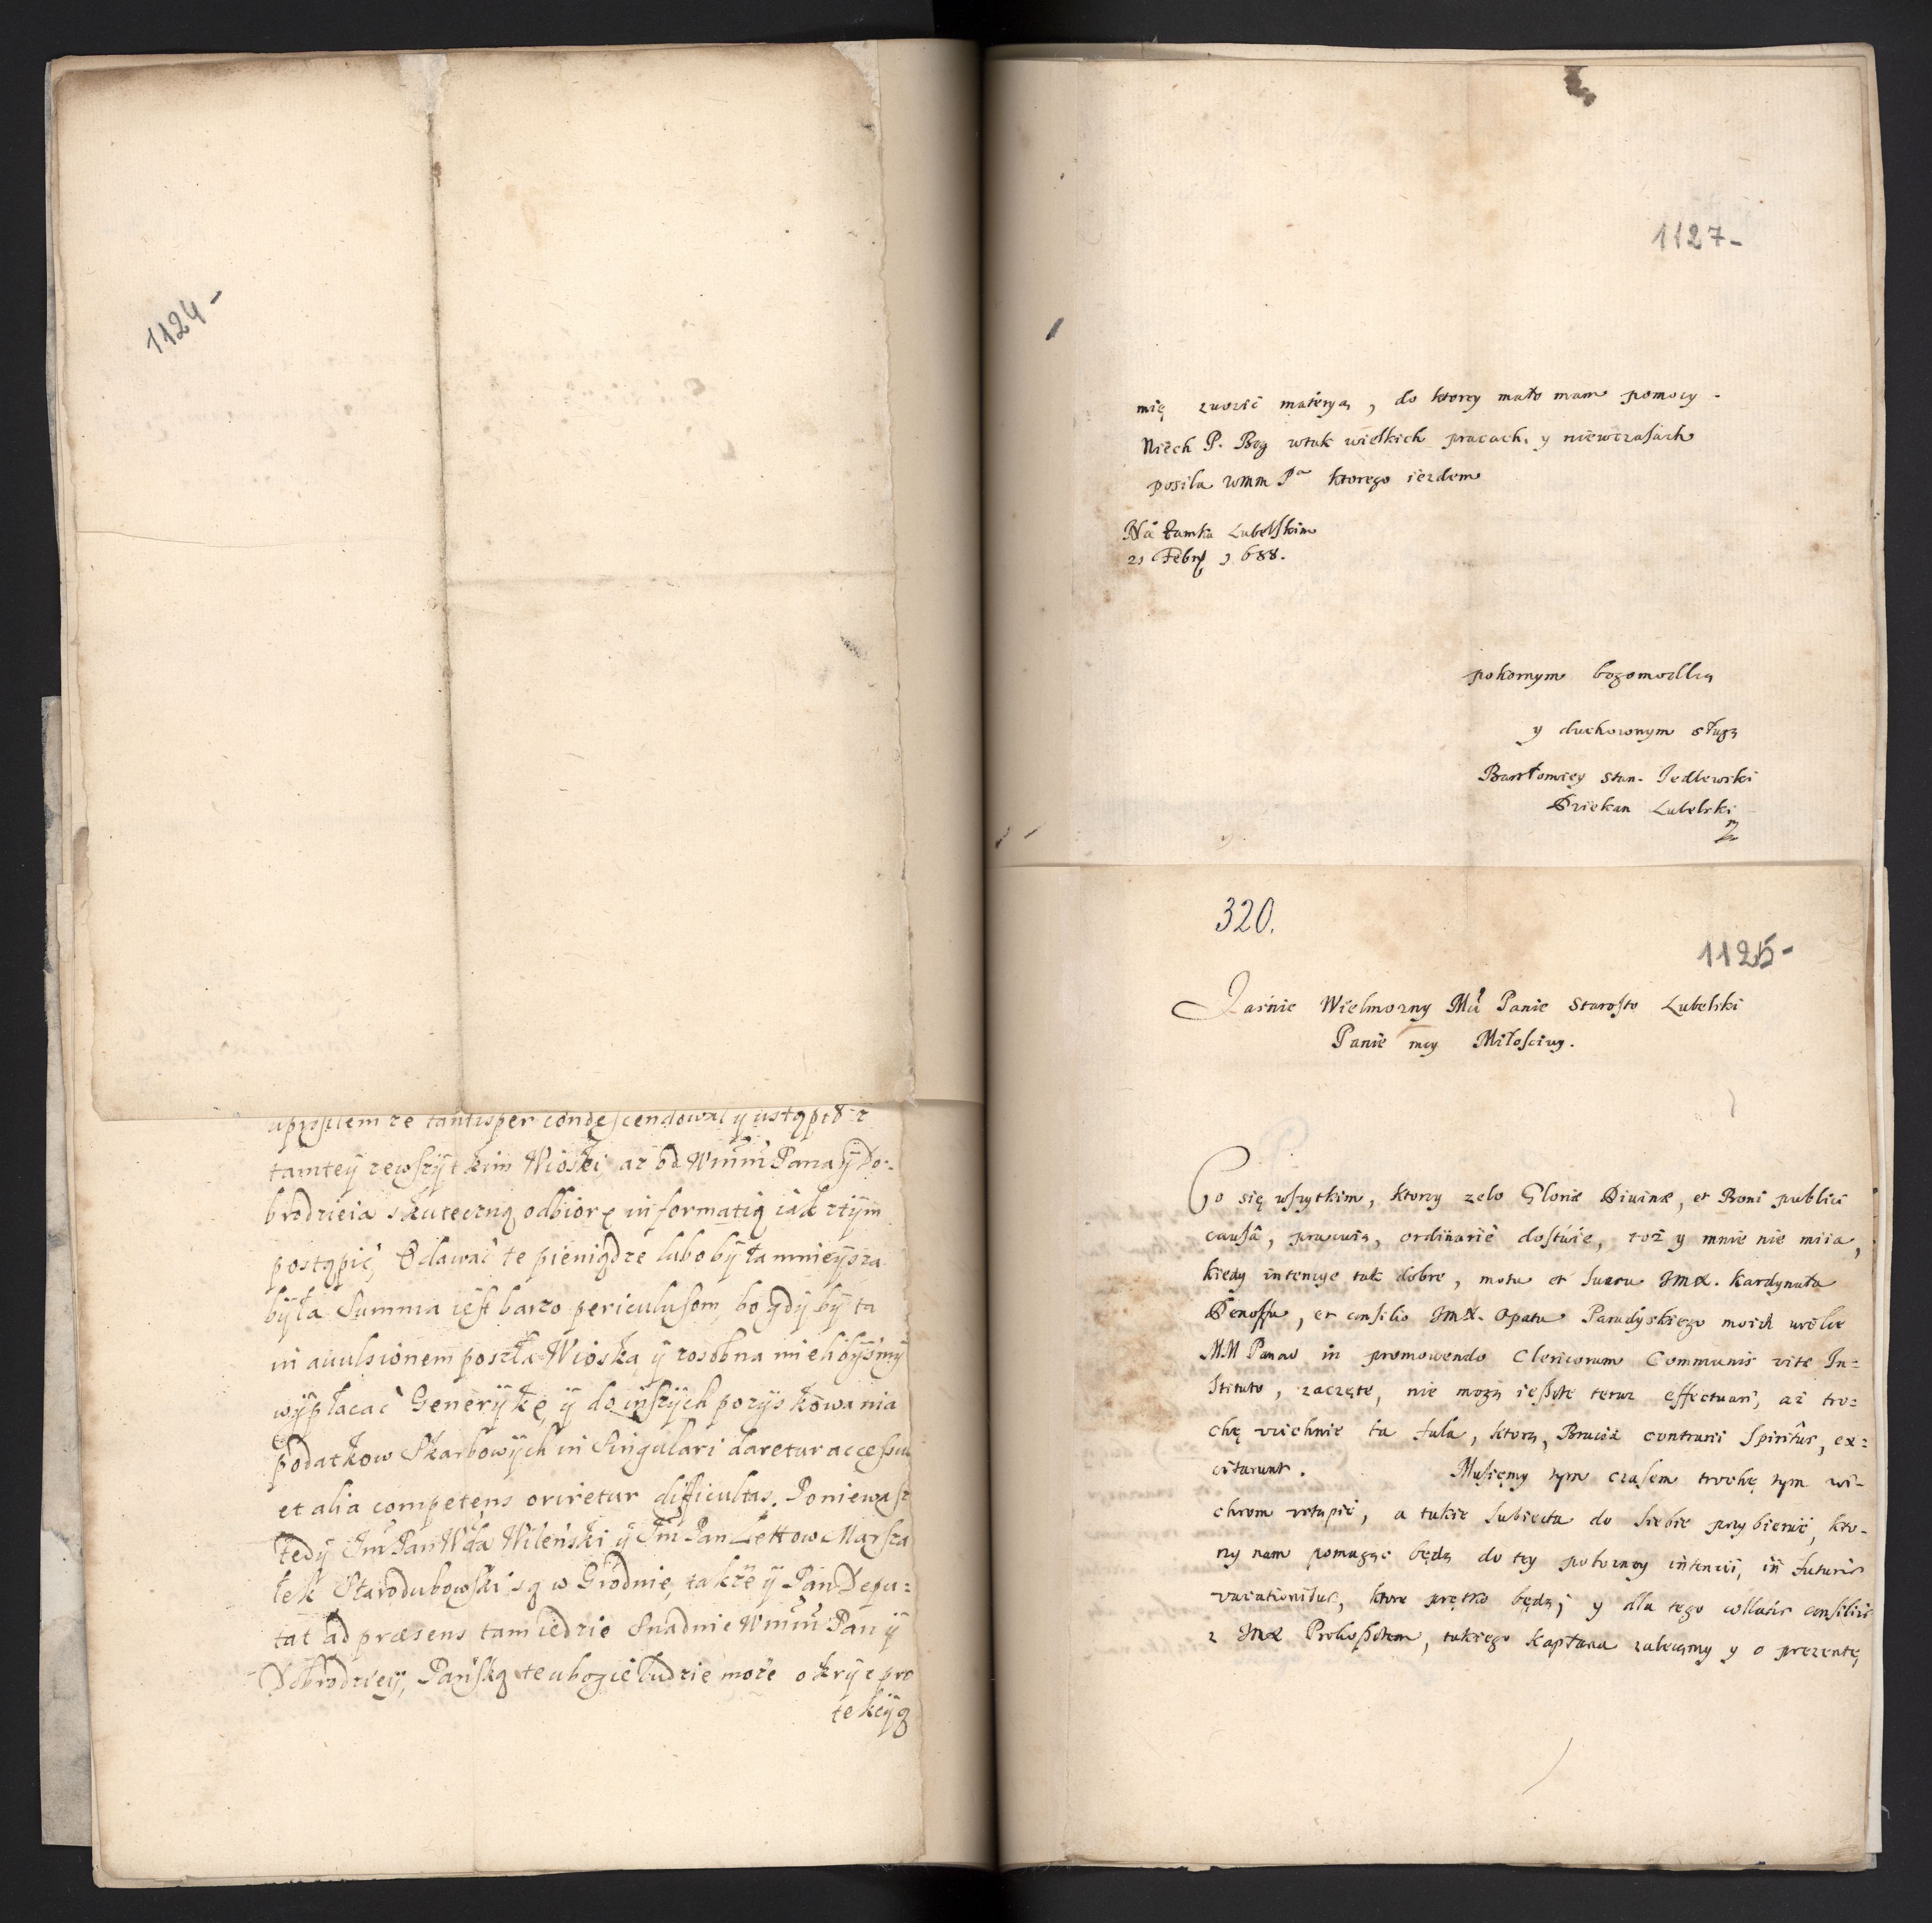 1124-
tamteÿ zewszÿtkim Wioski az od Wmm Pana ÿ Do-
brodzieia skuteczną odbiorę informatią iak ztÿm
postąpić, Odawać te pieniądze lubo bÿ ta mnieÿsza
bÿła Summa iest barzo periculusom, bo gdÿ bÿ ta
in avulsionem poszła Wioska ÿ zosobna mielibÿsmÿ
wÿpłacać Generÿkę ÿ do inszÿch pozÿskowania
podatkow Skarbowÿch in Singulari daretur accessus
et alia competens oriretur difficultas. Poniewasz
tedÿ Jm Pan Wda Wilenski ÿ Jm Pan Lettow Marsza
łek Starodubowski są w Grodnie, takze ÿ Pan Depu=
tat ad præsens tam iedzie Snadnie Wmm Pan ÿ
Dobrodzieÿ, Pańską te ubogie ludzie może okrÿc pro
tekcÿą
1127-
mię zwozić materyą, do ktorey mało mam pomocy.
Niech P. Bog wtak wielkich pracach, y niewczasach
posila wmm Pa ktorego iezdem
Na Zamku Lubelskim
21 Febry 1688.
pokornym bogomodlcą
y duchownym sługą
Bartłomiey Stan. Jedlewski
Dziekan Lubelski
320.
1125-
Jaśnie Wielmozny Mci Panie Starosto Lubelski
Panie moy Miłosciwy.
Co się wszytkim, ktorzy zelo Gloriæ Divinæ, et Boni publici
causâ, pracuią, ordinarie dostaie, toż y mnie nie miia,
kiedy intencye tak dobre, motu et Jmx. Kardynała
Denoffa, et consilio Jmx. Opata Paradyskiego moich wielce
MM Panow in promowendo Clericorum Communis vitæ In=
stituto, zaczęte, nie mogą ieszcze teraz effectuari, aż tro=
chę vcichnie ta fala, ktorą, Bracia contrarii Spiritûs, ex=
citarunt. Musiemy tym czasem trochę tym wi-
chrom vstąpić, a takie Subiecta do siebie przybierać, kto-
rzy nam pomagać będą do tey pobozney intencii, in futuris
vacationibus, ktore prętko będą; y dla tego collatis consiliis
z Jmx Proboszczem, takiego Kapłana zalecamy y o prezentę